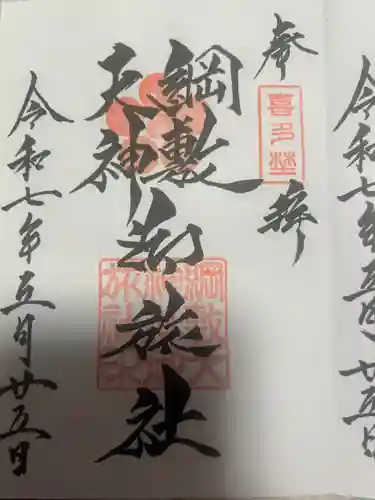 奉拝
喜多埜
綱敷
天神
御旅社
綱敷天神御旅社
令和七年五月廿五日
令和七年五月廿五日